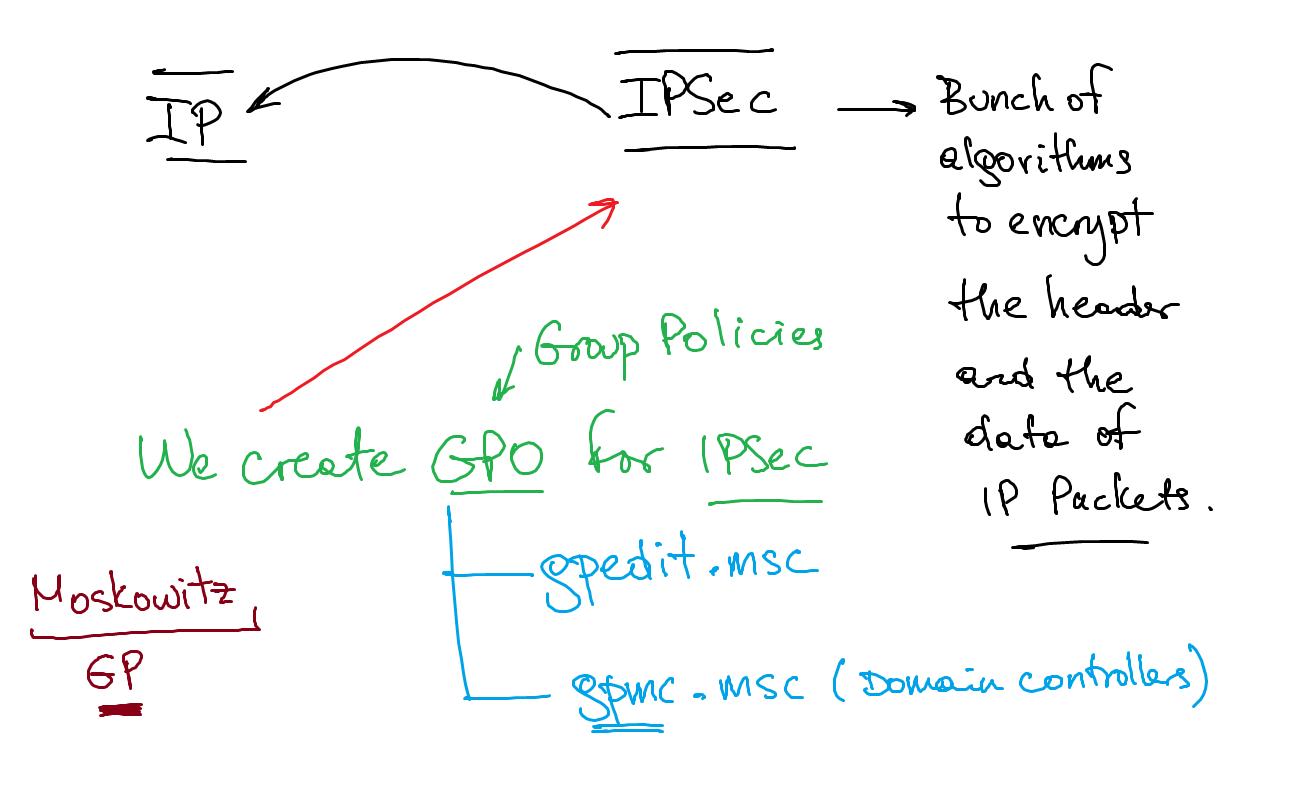 IP
IPSec
Bunch of
algorithms
to encrypt
the header
and the
data of
IP Packets.
Group Policies
We create GPO for IPSec
gpedit.msc
gpmc.msc (Domain controllers)
Moskowitz
GP